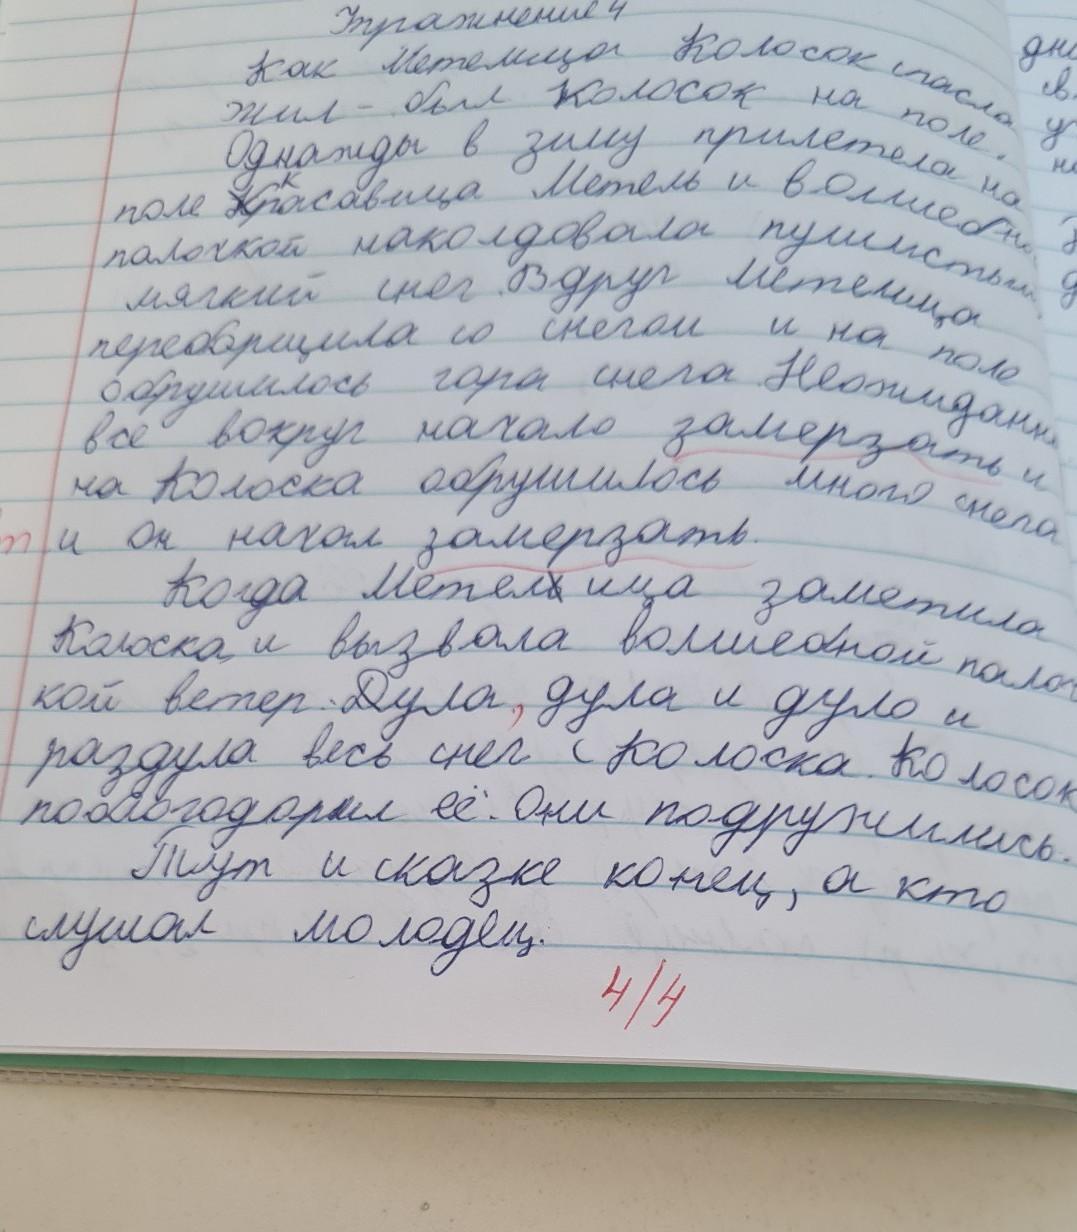 Упражнение 4
Как Метелица Колосок спасла
Жил-был Колосок на поле.
Однажды в зиму прилетела на
поле красавица Метель и волшебно
палочкой наколдовала пушистый
мягкий снег. Вдруг Метелица
переборщила со снегом и на поле
обрушилось гора снега. Неожиданн
все вокруг начало замерзать и
на Колоска обрушилось много снега
т и он начал замерзать.
Когда Метелица заметила
Колоска и вызвала волшебной палоч
кой ветер. Дула, дула и дуло и
раздула весь снег с Колоска. Колосок
поблогодорил её. Они подружились.
Тут и сказке конец, а кто
слушал молодец.
4/4
дно
в
у